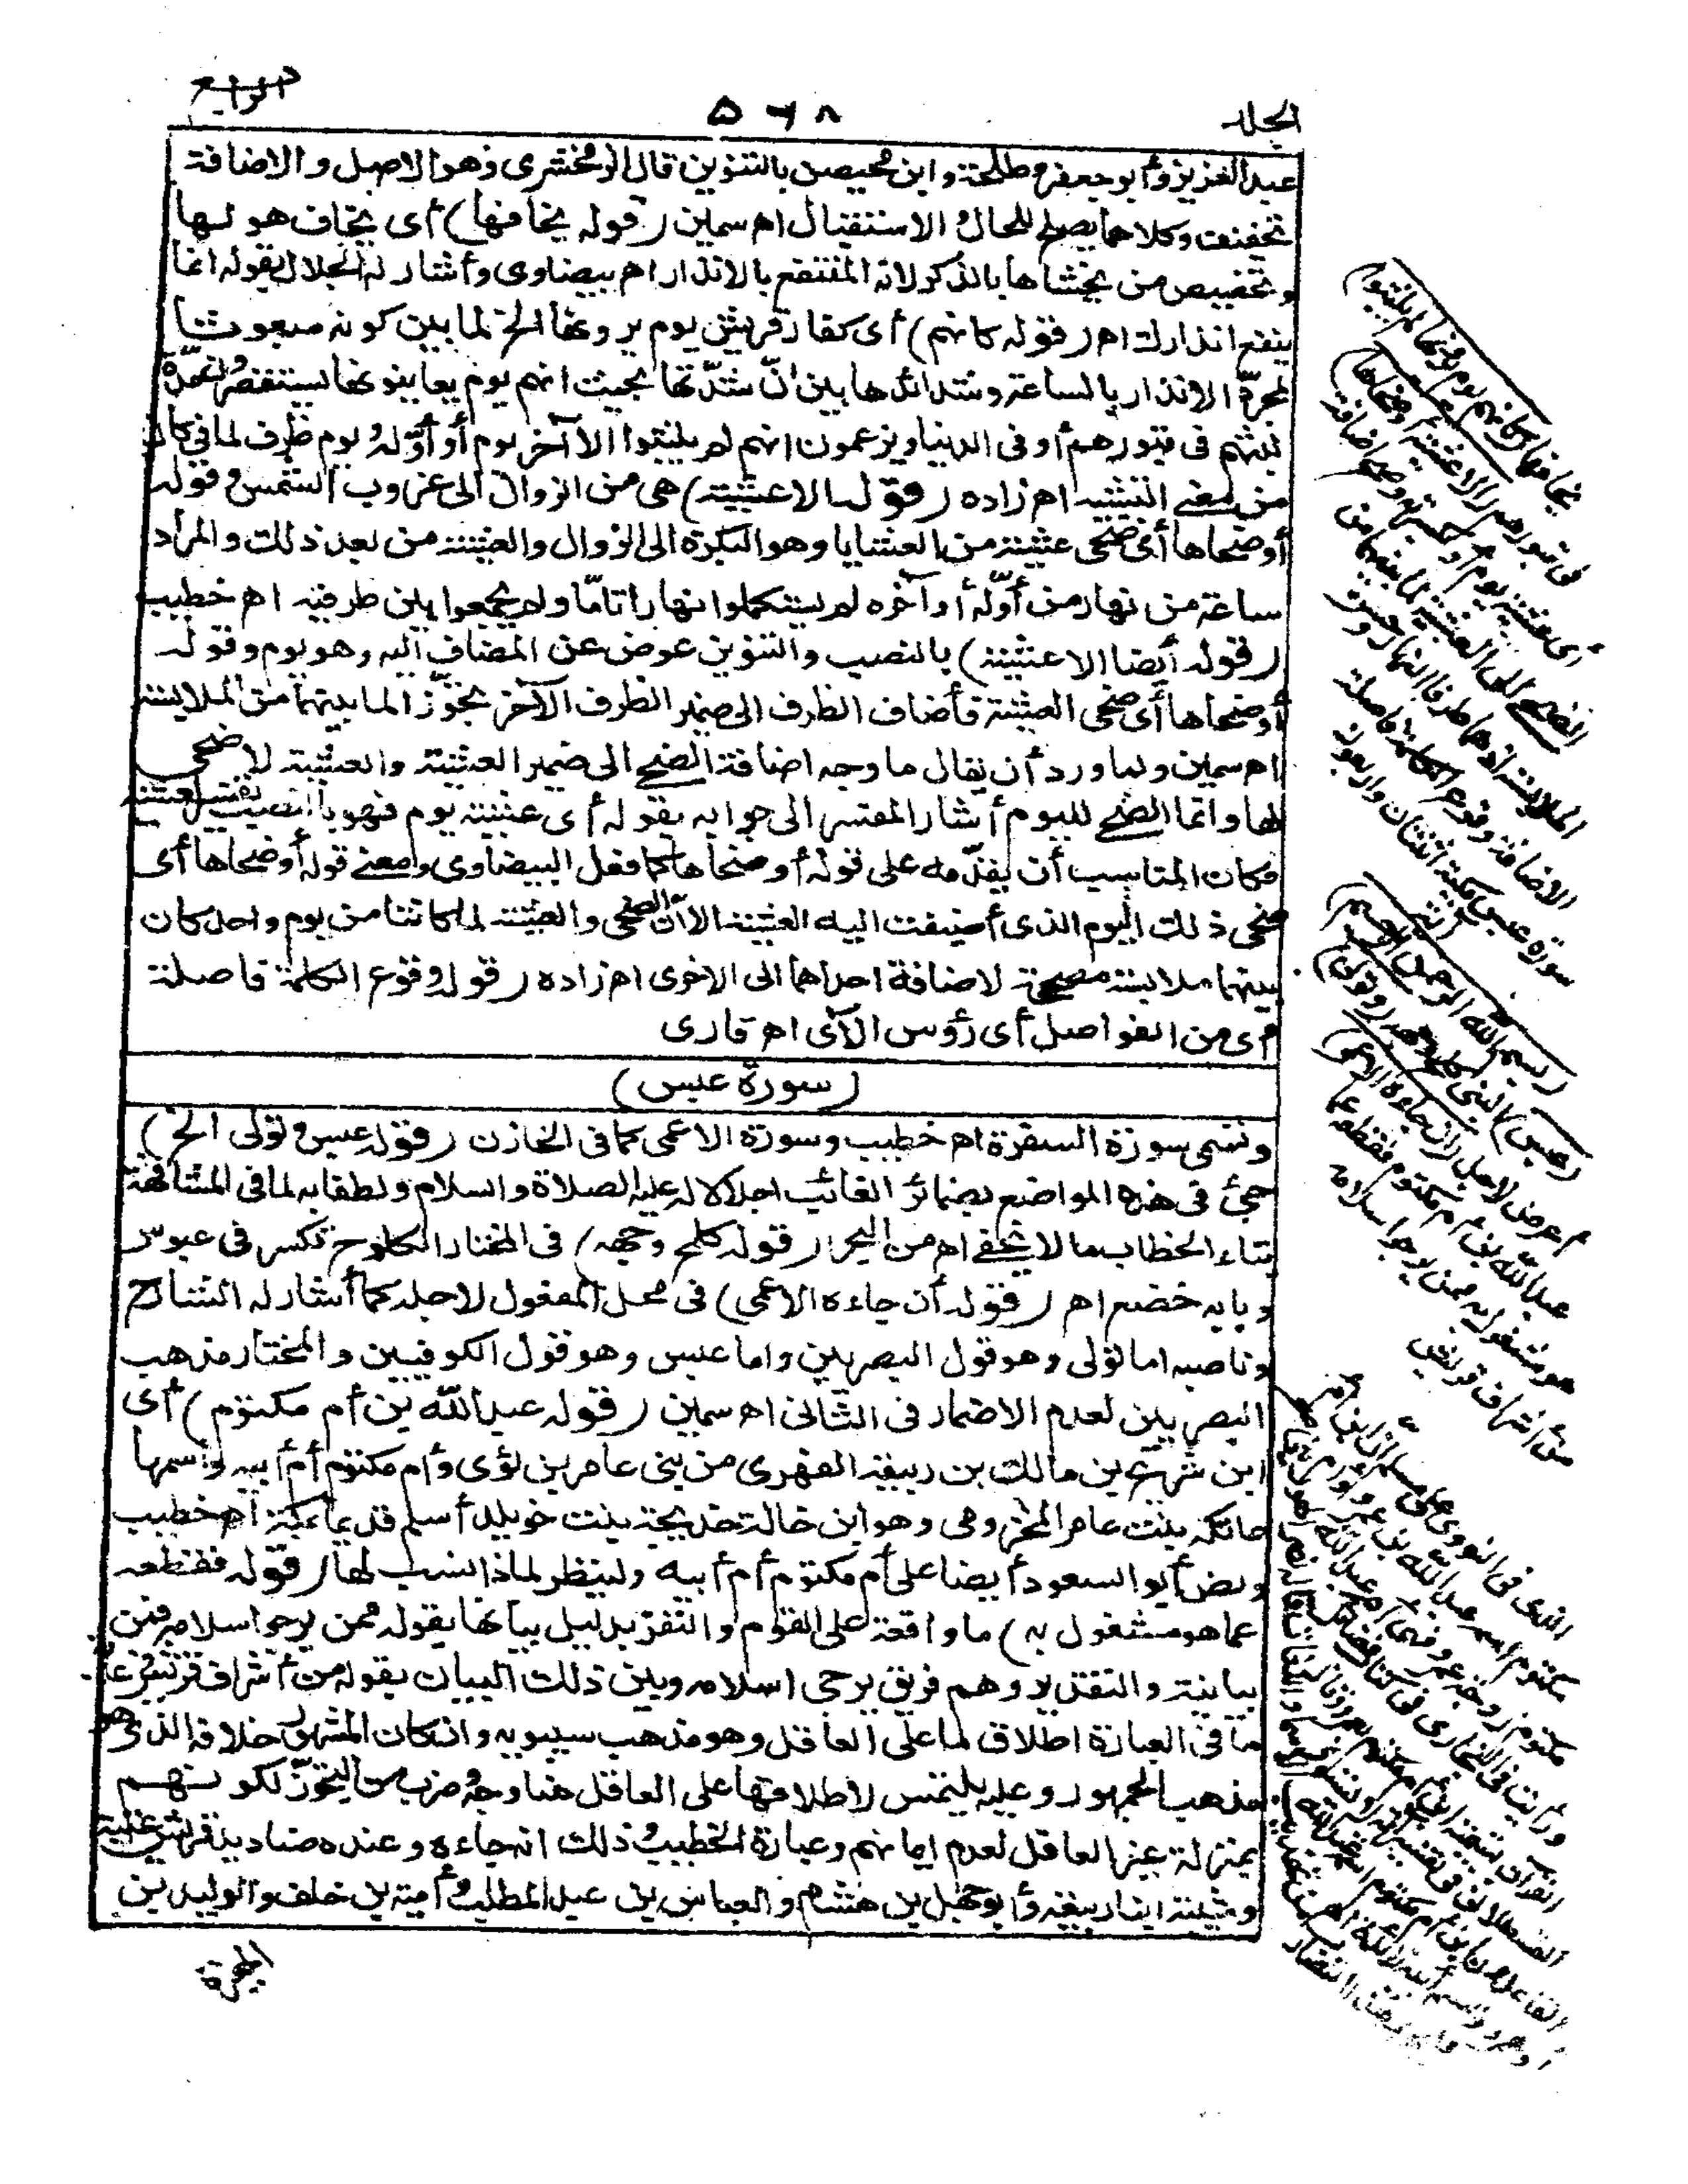 الجلد
٥٦٨
الرابع
عبد العزيز وأبو جعفر وطلحة وابن محيصن بالتنوين قال الزمخشرى وهو الاصل والاضافة
تخفيف وكلاهما يصلح للحال والاستقبال اه سمين (قوله يخافها) أى يخاف هولها
وتخصيص من يخشاها بالذكر لانه المنتفع بالانذار اه بيضاوى وأشار له الجلال بقوله انما
ينفع انذارك اه (قوله كانهم) أى كفار قريش يوم يرونها الخ لما بين كونه مبعوثا
لمجرّد الانذار بالساعة وشدائدها بين انّ شدّتها بحيث انهم يوم يعاينونها يستقصرون مدّة
لبثهم فى قبورهم أو فى الدنيا ويزعمون انهم لم يلبثوا الا آخر يوم أو أوّله ويوم ظرف لما فى كان
من معنى التشبيه اه زاده (قوله الا عشية) هى من الزوال الى غروب الشمس وقوله
أو ضحاها أى ضحى عشية من العشايا وهو البكرة الى الزوال والعشية من بعد ذلك والمراد
ساعة من نهار من أوّله أو آخره لم يستكملوا نهارا تامّا ولم يجمعوا بين طرفيه اه خطيب
(قوله أيضا الا عشية) بالنصب والتنوين عوض عن المضاف اليه وهو يوم وقوله
أو ضحاها أى ضحى العشية فأضاف الظرف الى ضمير الظرف الآخر تجوّزا لما بينهما من الملابسة
اه سمين ولما ورد أن يقال ما وجه اضافة الضحى الى ضمير العشية والعشية لا ضحى
لها وانما الضحى لليوم أشار المفسر الى جوابه بقوله أى عشية يوم فهو بالنصب تفسير لعشية
فكان المناسب أن يقدّمه على قوله أو ضحاها كما فعل البيضاوى ومعنى قوله أو ضحاها أى
ضحى ذلك اليوم الذى أضيفت اليه العشية الا أن الضحى والعشية لما كانتا من يوم واحد كان
بينهما ملابسة مصححة لاضافة احداهما الى الاخرى اه زاده (قوله وقوع الكلمة فاصلة
أى من الفواصل أى رؤس الآى اه قارى
(سورة عبس)
وتسمى سورة السفرة اه خطيب وسورة الاعمى كما فى الخازن (قوله عبس وتولى الخ)
جئ فى هذه المواضع بضمائر الغائب اجلالا له عليه الصلاة والسلام ولطفا به لما فى المشافهة
بتاء الخطاب ما لا يخفى اه من البحر (قوله كلح وجهه) فى المختار الكلوح تكسر فى عبوس
وبابه خضع اه (قوله أن جاءه الاعمى) فى محل المفعول لاجله كما أشار له الشارح
وناصبه اما تولى وهو قول البصريين واما عبس وهو قول الكوفيين والمختار مذهب
البصريين لعدم الاضمار فى الثانى اه سمين (قوله عبد الله بن أم مكتوم) أى
ابن شريح بن مالك بن ربيعة الفهرى من بنى عامر بن لؤى وأم مكتوم أم أبيه واسمها
عاتكة بنت عامر المخزومى وهو ابن خالة خديجة بنت خويلد أسلم قديما بمكة اه خطيب
ونص أبو السعود أيضا على أم مكتوم أم أبيه ولينظر لماذا نسب لها (قوله فقطعه
عما هو مشغول به) ما واقعة على القوم والتقرير بدليل بيانها بقوله ممن يرجو اسلامه فمن
بيانية والتقدير وهم فريق يرجى اسلامه وبين ذلك البيان بقوله من أشراف قريش
ما فى العبارة اطلاق لما على العاقل وهو مذهب سيبويه وان كان المشهور خلافه الذى هو
مذهب الجمهور وعليه يلتمس لاطلاقها على العاقل هنا وجه وضرب من التجوّز لكونهم
بمنزلة غير العاقل لعدم ايمانهم وعبارة الخطيب وذلك انه جاءه وعنده صناديد قريش عتبة
وشيبة ابنا ربيعة وأبو جهل بن هشام والعباس بن عبد المطلب وأمية بن خلف والوليد بن
المغيرة
يخافها (كانهم يوم يرونها لم يلبثوا)
فى قبورهم (الا عشية أو ضحاها)
أى عشية يوم أو بكرته وصح اضافة
الضحى الى العشية لما بينهما من
الملابسة اذ هما طرفا النهار وحسن
الاضافة وقوع الكلمة فاصلة
سورة عبس مكية اثنتان وأربعون
آية
(بسم الله الرحمن الرحيم)
(عبس) النبى كلح وجهه (وتولى)
أعرض لاجل (أن جاءه الاعمى)
عبد الله بن أم مكتوم فقطعه عما
هو مشغول به ممن يرجو اسلامه
من أشراف قريش